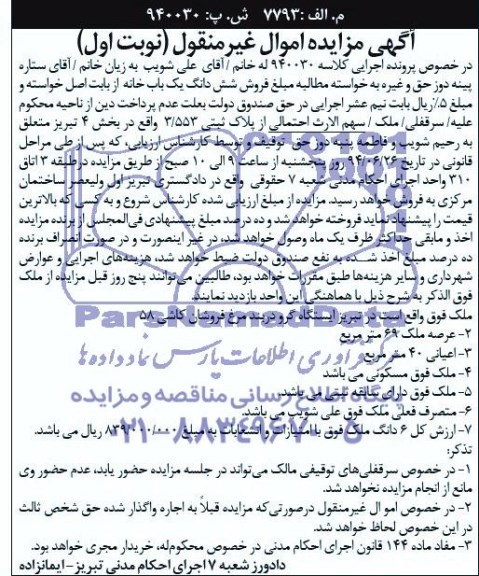 م. الف: ۷۷۹۳ ش. پ: ۹۴۰۰۳۰
آگهی مزایده اموال غیرمنقول (نوبت اول)
در خصوص پرونده اجرایی کلاسه ۹۴۰۰۳۰ له خانم / آقای علی شویب به زیان خانم / آقای ستاره
پینه دوز حق و غیره به خواسته مطالبه مبلغ فروش شش دانگ یک باب خانه از بابت اصل خواسته و
مبلغ ۵٪ ریال بابت نیم عشر اجرایی در حق صندوق دولت بعلت عدم پرداخت دین از ناحیه محکوم
علیه/ سرقفلی/ ملک / سهم الارث احتمالی از پلاک ثبتی ۳/۵۵۳ واقع در بخش ۴ تبریز متعلق
به رحیم شویب و فاطمه پنیه دوز حق توقیف و توسط کارشناس ارزیابی، که پس از طی مراحل
قانونی در تاریخ ۹۴/۰۶/۲۶ روز پنجشنبه از ساعت ۹ الی ۱۰ صبح از طریق مزایده در طبقه ۳ اتاق
۳۱۰ واحد اجرای احکام مدنی شعبه ۷ حقوقی واقع در دادگستری تبریز اول ولیعصر ساختمان
مرکزی به فروش خواهد رسید. مزایده از مبلغ ارزیابی شده کارشناس شروع و به کسی که بالاترین
قیمت را پیشنهاد نماید فروخته خواهد شد و ده درصد مبلغ پیشنهادی فی‌المجلس از برنده مزایده
اخذ و مابقی حداکثر ظرف یک ماه وصول خواهد شد، در غیر اینصورت و در صورت انصراف برنده
ده درصد مبلغ اخذ شده به نفع صندوق دولت ضبط خواهد شد، هزینه‌های اجرایی و عوارض
شهرداری و سایر هزینه‌ها طبق مقررات خواهد بود، طالبین می‌توانند پنج روز قبل مزایده از ملک
فوق الذکر به شرح ذیل با هماهنگی این واحد بازدید نمایند.
ملک فوق واقع است در تبریز ایستگاه گرو دربند مرغ فروشان کاشی ۵۸
۲- عرصه ملک ۶۹ متر مربع
۳- اعیانی ۴۰ متر مربع
۴- ملک فوق مسکونی می باشد
۵- ملک فوق دارای سابقه ثبتی می باشد
۶- متصرف فعلی ملک فوق علی شویب می باشد.
۷- ارزش کل ۶ دانگ ملک فوق با امتیازات و انشعابات به مبلغ ریال می باشد.
تذکر:
۱- در خصوص سرقفلی‌های توقیفی مالک می‌تواند در جلسه مزایده حضور یابد، عدم حضور وی
مانع از انجام مزایده نخواهد شد.
۲- در خصوص امو ال غیرمنقول درصورتی‌که مزایده قبلاً به اجاره واگذار شده حق شخص ثالث
در این خصوص لحاظ خواهد شد.
۳- مفاد ماده ۱۴۴ قانون اجرای احکام مدنی در خصوص محکوم‌له، خریدار مجری خواهد بود.
دادورز شعبه ۷ اجرای احکام مدنی تبریز - ایمانزاده
ParsNamadData
گردآوری اطلاعات پارس نماد داده ها
پایگاه اطلاع رسانی مناقصه و مزایده
۰۲۱-۸۸۳۴۹۶۷۰-۵